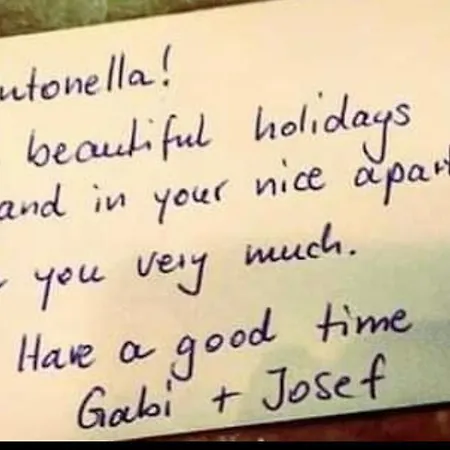 ntonella!
beautiful holidays
and in your nice apart
you very much.
Have a good time
Gabi + Josef